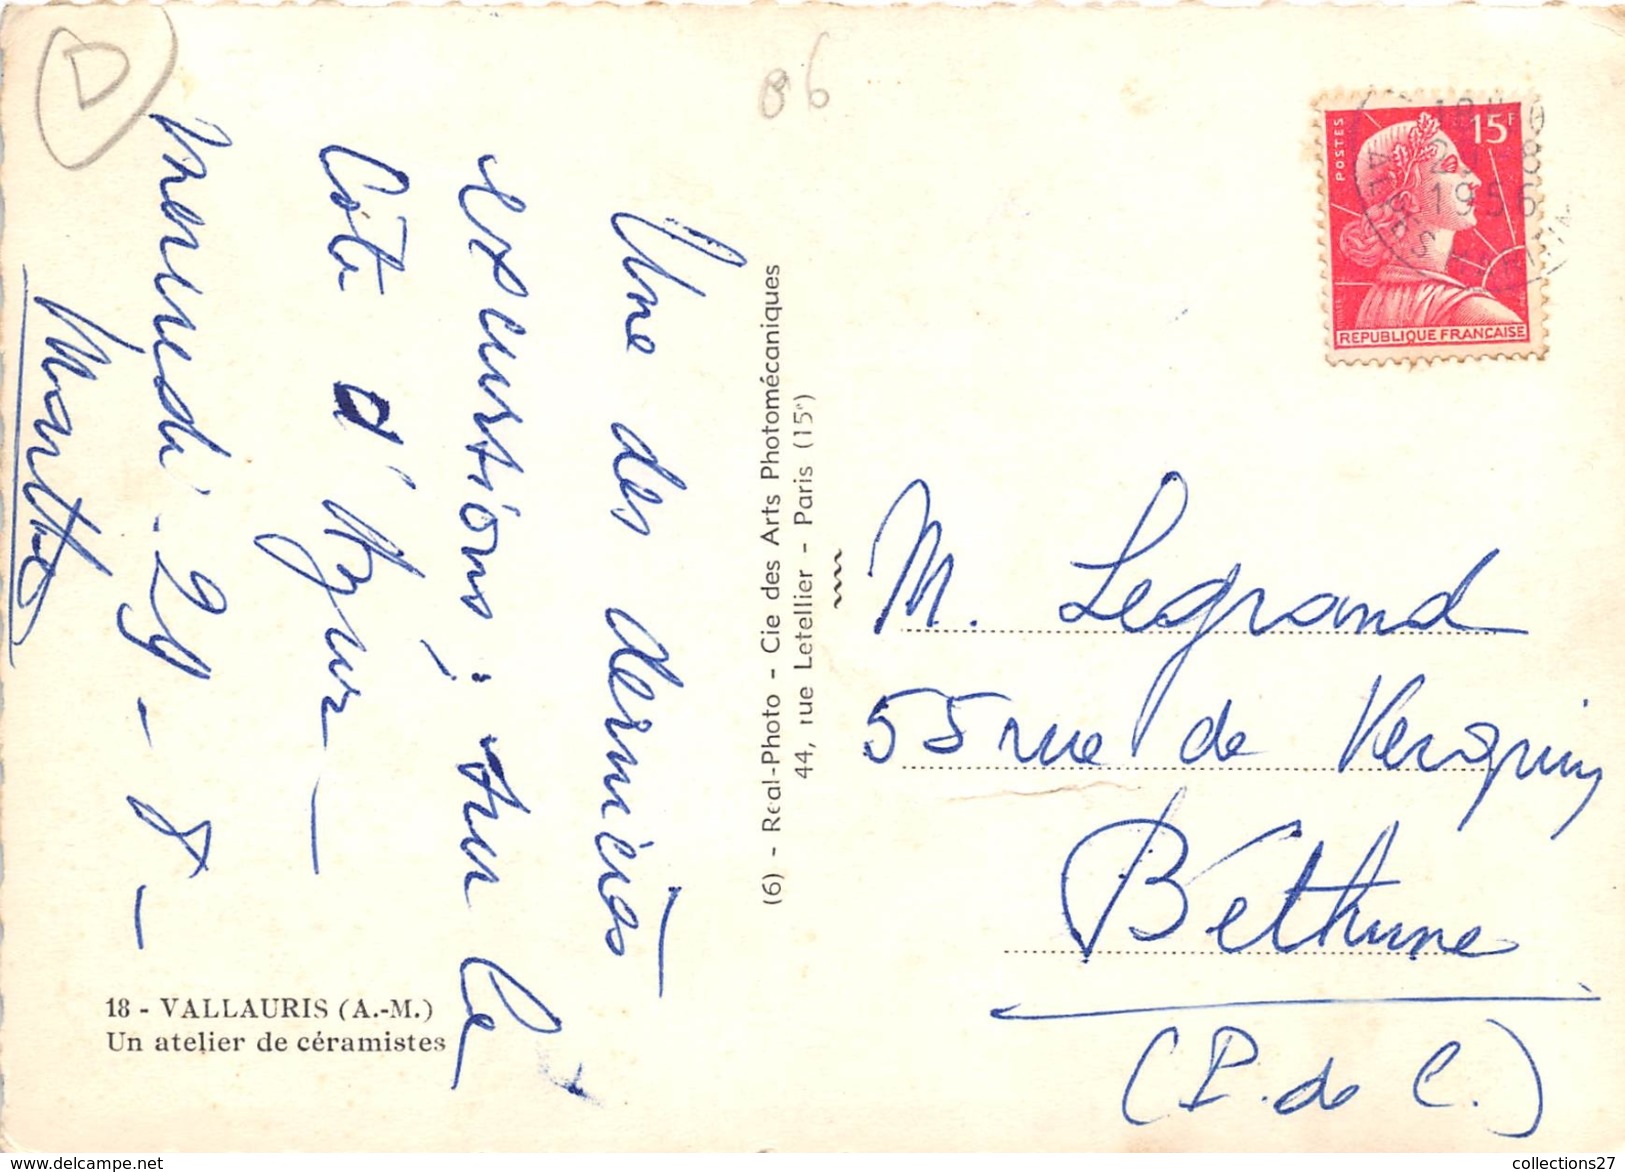 D
06
Une des dernières
excursions ; sur la
Côte d'Azur
mercredi . 29 - 8 -
Marthe
18 - VALLAURIS (A.-M.)
Un atelier de céramistes
(6) - Real-Photo - Cie des Arts Photomécaniques
44, rue Letellier - Paris (15e)
POSTES
15F
REPUBLIQUE FRANÇAISE
-8
1956
ALPES
M. Legrand
55 rue de Verquin
Béthune
(P. de C.)
collections27